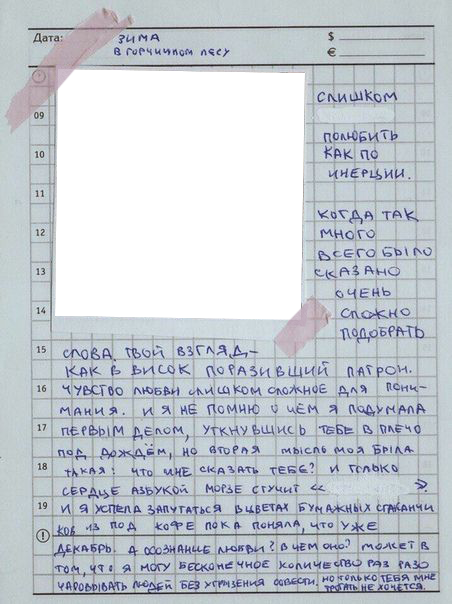 Дата: ЗИМА $
В ГОРЧИЧНОМ ЛЕСУ €
СЛИШКОМ
09
ПОЛЮБИТЬ
10 КАК ПО
ИНЕРЦИИ.
11
КОГДА ТАК
12 МНОГО
ВСЕГО БЫЛО
13 СКАЗАНО
ОЧЕНЬ
14 СЛОЖНО
ПОДОБРАТЬ
15 СЛОВА. ТВОЙ ВЗГЛЯД –
КАК В ВИСОК ПОРАЗИВШИЙ ПАТРОН.
16 ЧУВСТВО ЛЮБВИ СЛИШКОМ СЛОЖНОЕ ДЛЯ ПОНИ-
МАНИЯ. И Я НЕ ПОМНЮ О ЧЕМ Я ПОДУМАЛА
17 ПЕРВЫМ ДЕЛОМ, УТКНУВШИСЬ ТЕБЕ В ПЛЕЧО
ПОД ДОЖДЁМ, НО ВТОРАЯ МЫСЛЬ МОЯ БЫЛА
18 ТАКАЯ: ЧТО МНЕ СКАЗАТЬ ТЕБЕ? И ТОЛЬКО
СЕРДЦЕ АЗБУКОЙ МОРЗЕ СТУЧИТ « ».
19 И Я УСПЕЛА ЗАПУТАТЬСЯ В ЦВЕТАХ БУМАЖНЫХ СТАКАНЧИ
КОВ ИЗ ПОД КОФЕ ПОКА ПОНЯЛА, ЧТО УЖЕ
ДЕКАБРЬ. А ОСОЗНАНИЕ ЛЮБВИ? В ЧЕМ ОНО? МОЖЕТ В
ТОМ, ЧТО Я МОГУ БЕСКОНЕЧНОЕ КОЛИЧЕСТВО РАЗ РАЗО
ЧАРОВЫВАТЬ ЛЮДЕЙ БЕЗ УГРЫЗЕНИЯ СОВЕСТИ. НО ТОЛЬКО ТЕБЯ МНЕ
ТРОГАТЬ НЕ ХОЧЕТСЯ.